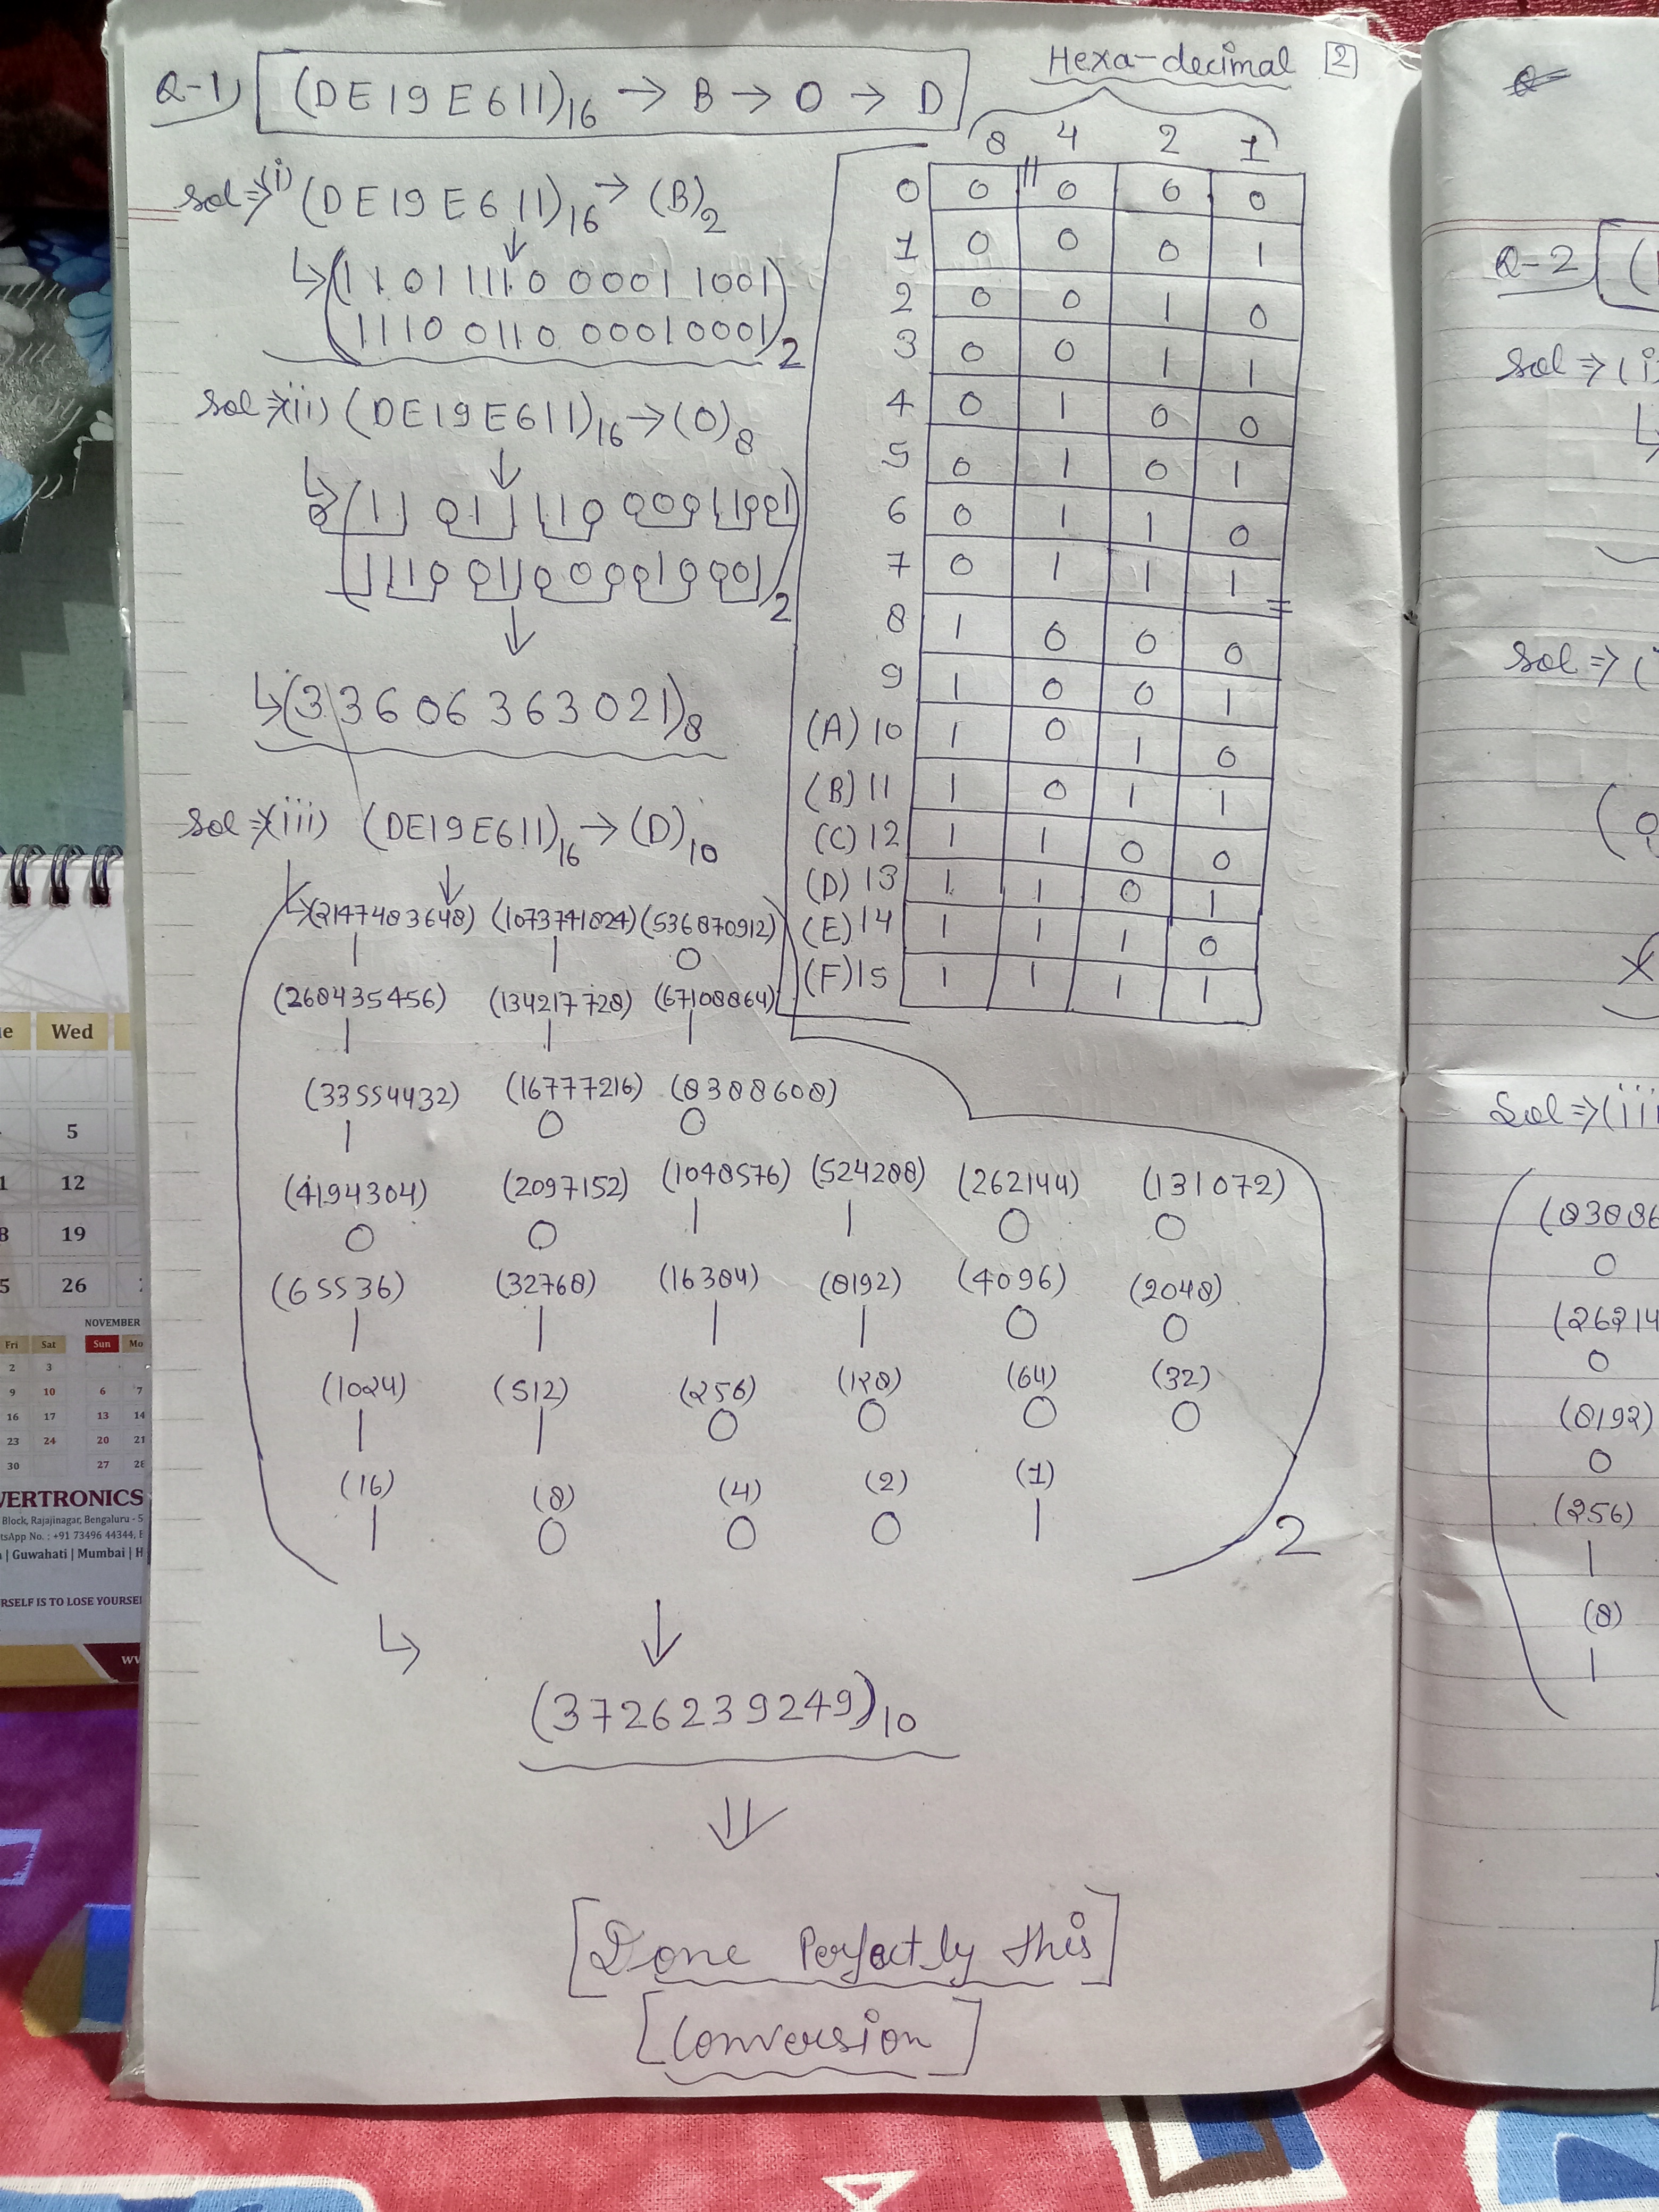 Hexa-decimal 2
Q-1) (DE19E611)16 → B → O → D
Sol ⇒ (i) (DE19E611)16 → (B)2
↓
↳ (1101 1110 0001 1001
1110 0110 0001 0001)2
Sol ⇒ (ii) (DE19E611)16 → (O)8
↓
↳ 0(11 01 1 110 0001 1001
1110 0110 0001 0001)2
↓
↳ (33606363021)8
Sol ⇒ (iii) (DE19E611)16 → (D)10
↓
↳ (2147483648) (1073741824) (536870912)
1 1 0
(268435456) (134217728) (67108864)
1 1 1
(33554432) (16777216) (8388608)
1 0 0
(4194304) (2097152) (1048576) (524288) (262144) (131072)
0 0 1 1 0 0
(65536) (32768) (16384) (8192) (4096) (2048)
1 1 1 1 0 0
(1024) (512) (256) (128) (64) (32)
1 1 0 0 0 0
(16) (8) (4) (2) (1)
1 0 0 0 1
2
↳ ↓
(3726239249)10
⇓
[Done Perfectly this]
[Conversion]
8 4 2 1
0 0 0 0 0
1 0 0 0 1
2 0 0 1 0
3 0 0 1 1
4 0 1 0 0
5 0 1 0 1
6 0 1 1 0
7 0 1 1 1
8 1 0 0 0
9 1 0 0 1
(A) 10 1 0 1 0
(B) 11 1 0 1 1
(C) 12 1 1 0 0
(D) 13 1 1 0 1
(E) 14 1 1 1 0
(F) 15 1 1 1 1
Q-2 (
Sol ⇒ (i
↳
Sol ⇒ (
(0
Sol ⇒ (iii
(83886
0
(26214
0
(8192)
0
(256)
1
(8)
1
Wed
5
12
19
26
NOVEMBER
Fri Sat Sun Mo
2 3
9 10 6 7
16 17 13 14
23 24 20 21
30 27 28
VERTRONICS
Block, Rajajinagar, Bengaluru - 5
tsApp No. : +91 73496 44344,
| Guwahati | Mumbai | H
RSELF IS TO LOSE YOURSE
ww